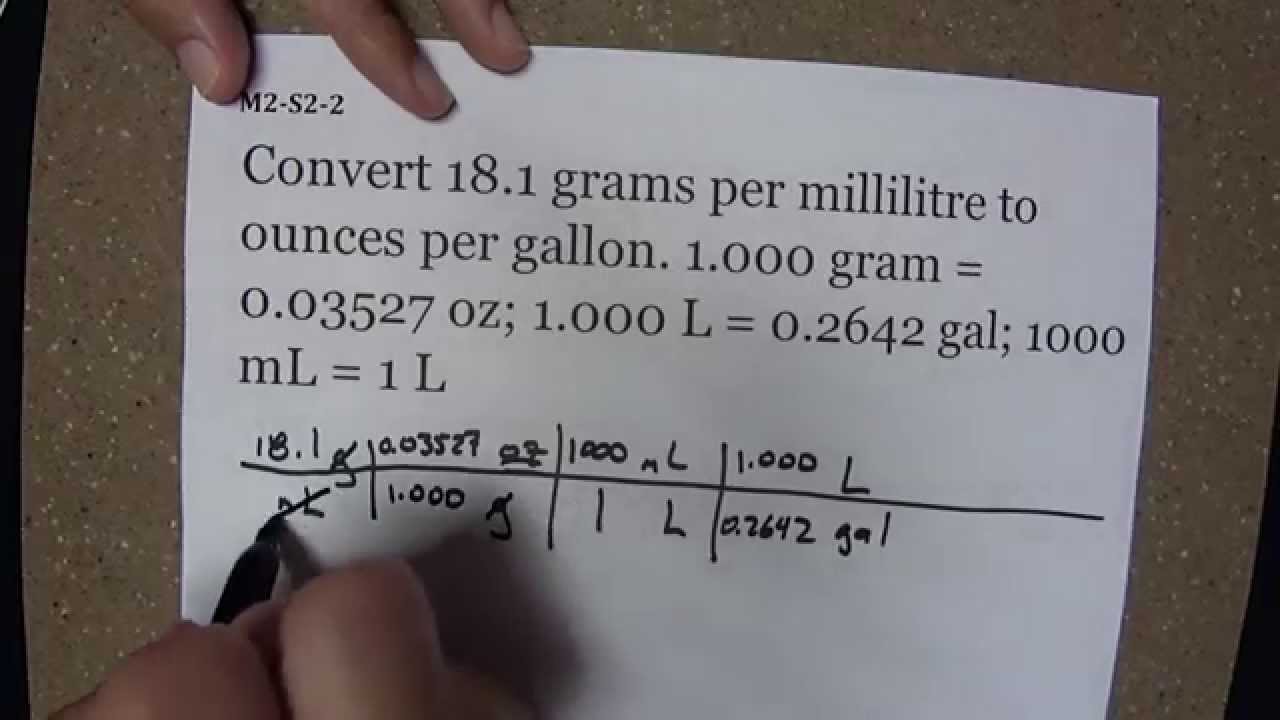 M2-S2-2
Convert 18.1 grams per millilitre to
ounces per gallon. 1.000 gram =
0.03527 oz; 1.000 L = 0.2642 gal; 1000
mL = 1 L
18.1 g 0.03527 oz 1000 mL 1.000 L
mL 1.000 g 1 L 0.2642 gal